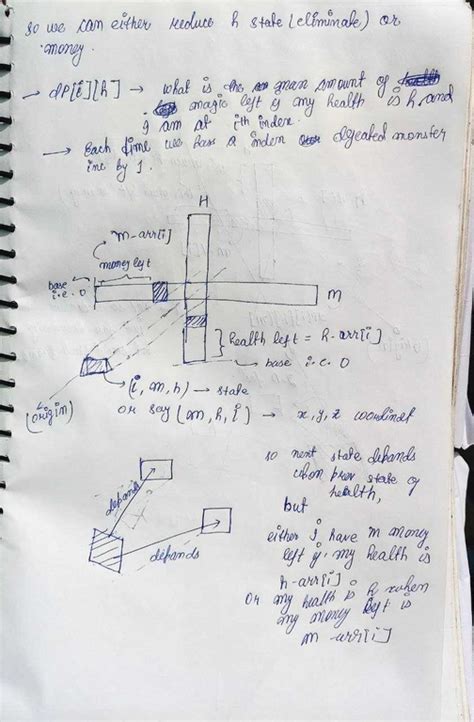 so we can either reduce h state (eliminate) or
money.
→ dp[i][h] → what is the max amount of
magic left if my health is h and
I am at ith index.
→ Each time we pass a index defeated monster
inc by 1.
H
m-arr[i]
money left
base
i.e. 0
M
health left = h-arr[i]
base i.e. 0
(i, m, h) → state
(origin)
or say (m, h, i) → x, y, z coordinat
so next state depands
upon prev state of
health,
but
depands
either I have m money
left if my health is
depands
h-arr[i]
or my health is h when
my money left is
m-arr[i]